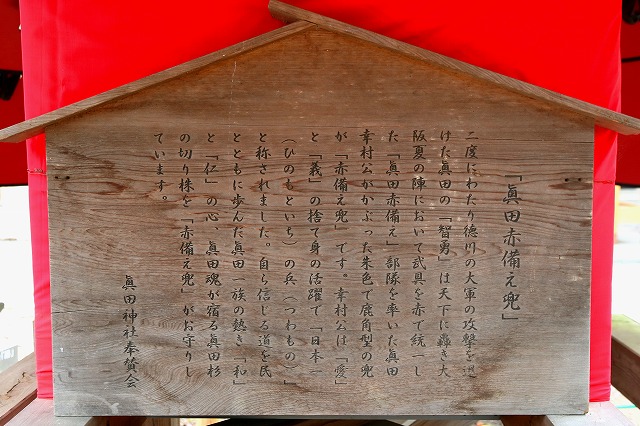 「眞田赤備え兜」
二度にわたり徳川の大軍の攻撃を退
けた眞田の「智勇」は天下に轟き大
阪夏の陣において武具を赤で統一し
た「眞田赤備え」部隊を率いた眞田
幸村公がかぶった朱色で鹿角型の兜
が「赤備え兜」です。幸村公は「愛」
と「義」の捨て身の活躍で「日本一
（ひのもといち）の兵（つわもの）」
と称されました。自ら信じる道を民
とともに歩んだ眞田一族の熱き「和」
と「仁」の心、眞田魂が宿る眞田杉
の切り株を「赤備え兜」がお守りし
ています。
眞田神社奉賛会